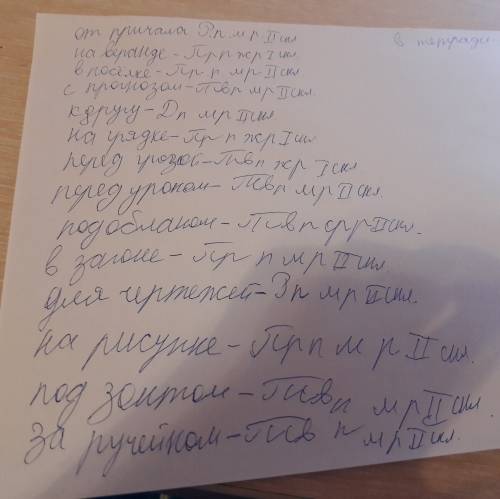 от причала Р.п м р II скл
в тетради
на веранде - Пр п ж р I скл
в посёлке - Пр п м р II скл
с прогнозом - Тв п м р II скл.
к другу - Д п м р II скл
на грядке - Пр п ж р I скл
перед грозой - Тв п ж р I скл
перед уроком - Тв п м р II скл.
под облаком - Тв п ср р II скл.
в загоне - Пр п м р II скл
для чертежей - Р п м р II скл.
на рисунке - Пр п м р II скл.
под зонтом - Тв п м р II скл.
за ручейком - Тв п м р II скл.